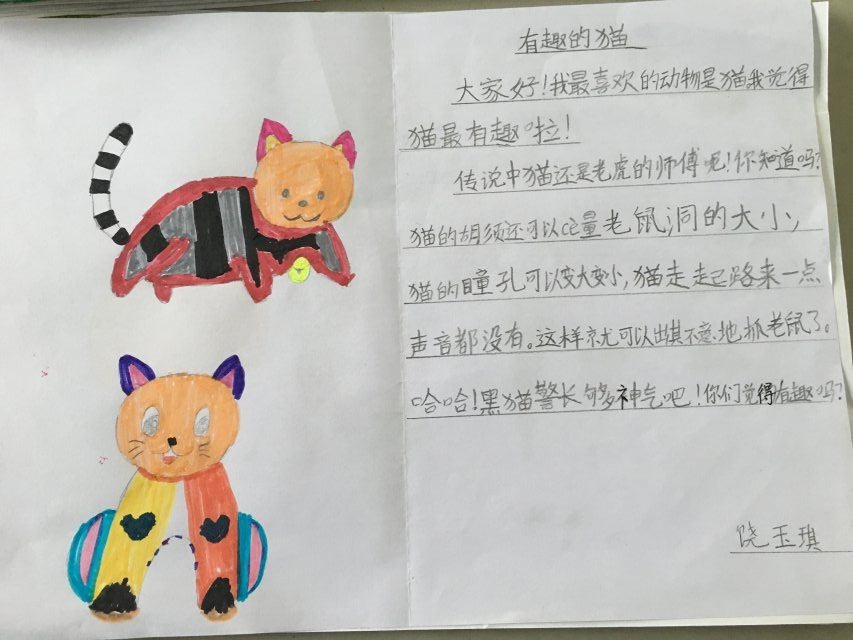 有趣的猫
大家好!我最喜欢的动物是猫我觉得
猫最有趣啦!
传说中猫还是老虎的师傅呢!你知道吗?
猫的胡须还可以测量老鼠洞的大小,
猫的瞳孔可以变大变小,猫走起路来一点
声音都没有。这样就可以出其不意地抓老鼠了。
哈哈!黑猫警长够神气吧!你们觉得有趣吗?
饶玉琪